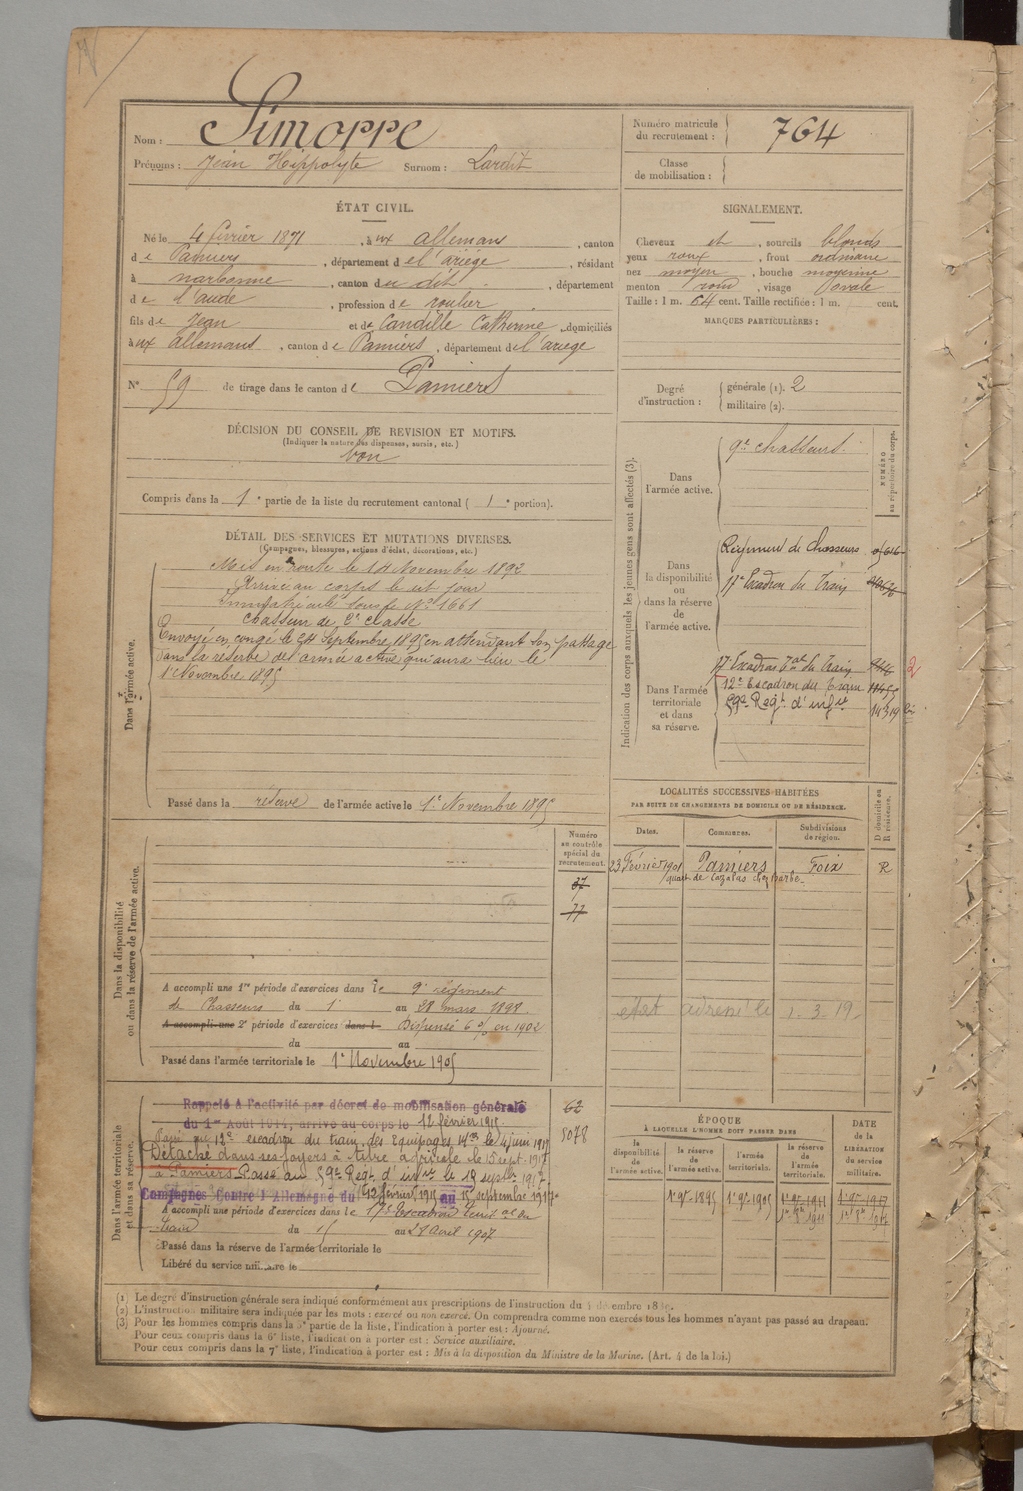 Nom : Simorre
Prénoms : Jean Hippolyte Surnom : Lardit
Numéro matricule du recrutement : 764
Classe de mobilisation :
ÉTAT CIVIL.
Né le 4 février 1871, à ux allemans, canton
de Pamiers, département de l'ariège, résidant
à narbonne, canton du dit, département
de l'aude, profession de roulier
fils de Jean et de Candille Catherine, domiciliés
à ux allemans, canton de Pamiers, département de l'ariège
N° 59 de tirage dans le canton de Pamiers
SIGNALEMENT.
Cheveux et, sourcils blonds
yeux roux, front ordinaire
nez moyen, bouche moyenne
menton rond, visage ovale
Taille : 1 m. 64 cent. Taille rectifiée : 1 m. cent.
MARQUES PARTICULIÈRES :
Degré d'instruction : générale (1). 2
militaire (2).
DÉCISION DU CONSEIL DE REVISION ET MOTIFS.
(Indiquer la nature des dispenses, sursis, etc.)
bon
Compris dans la 1e partie de la liste du recrutement cantonal ( 1e portion).
DÉTAIL DES SERVICES ET MUTATIONS DIVERSES.
(Campagnes, blessures, actions d'éclat, décorations, etc.)
Dans l'armée active.
Mis en route le 14 Novembre 1892
Arrivé au corps le dit jour
Immatriculé sous le N° 1661
Chasseur de 2e classe
Envoyé en congé le 24 Septembre 1895 en attendant son passage
dans la réserve de l'armée active qui aura lieu le
1 Novembre 1895
Passé dans la réserve de l'armée active le 1er Novembre 1895
Indication des corps auxquels les jeunes gens sont affectés (3).
NUMÉRO au répertoire du corps.
Dans l'armée active.
9e chasseurs.
Dans la disponibilité ou dans la réserve de l'armée active.
Régiment de Chasseurs
17e Escadron du Train
Dans l'armée territoriale et dans sa réserve.
17e Escadron Tal du Train 2
12e Escadron du Train
59e Régt d'infie 14319
LOCALITÉS SUCCESSIVES HABITÉES
PAR SUITE DE CHANGEMENTS DE DOMICILE OU DE RÉSIDENCE.
D domicile ou R résidence.
Dates. Communes. Subdivisions de région.
23 Février 1901 Pamiers Foix R
état adressé le 1-3-19
Dans la disponibilité ou dans la réserve de l'armée active.
Numéro au contrôle spécial du recrutement.
37
77
A accompli une 1re période d'exercices dans le 9e régiment
de Chasseurs du 1er au 28 mars 1898.
A accompli une 2e période d'exercices dans l Dispensé 6% en 1902
du au
Passé dans l'armée territoriale le 1er Novembre 1905
Dans l'armée territoriale et dans sa réserve.
Rappelé à l'activité par décret de mobilisation générale 62
du 1er Août 1914, arrivé au corps le 12 février 1915. 5078
Passé au 12e escadron du train des équipages mres le 4 juin 1917
Détaché dans ses foyers à titre agricole le 15 sept. 1917
à Pamiers. Passé au 59e Régt d'infie le 19 septbre 1917.
Campagnes Contre l'Allemagne du 12 février 1915 au 15 septembre 1917
A accompli une période d'exercices dans le 17e Escadron Territal du
train du 15 au 21 avril 1907
Passé dans la réserve de l'armée territoriale le
Libéré du service militaire le
ÉPOQUE
À LAQUELLE L'HOMME DOIT PASSER DANS
la disponibilité de l'armée active. la réserve de l'armée active. l'armée territoriale. la réserve de l'armée territoriale.
DATE de la LIBÉRATION du service militaire.
1er 9bre 1895 1er 9bre 1905 1er 9bre 1911 1er 9bre 1917
(1) Le degré d'instruction générale sera indiqué conformément aux prescriptions de l'instruction du 4 décembre 1889.
(2) L'instruction militaire sera indiquée par les mots : exercé ou non exercé. On comprendra comme non exercés tous les hommes n'ayant pas passé au drapeau.
(3) Pour les hommes compris dans la 5e partie de la liste, l'indication à porter est : Ajourné.
Pour ceux compris dans la 6e liste, l'indication à porter est : Service auxiliaire.
Pour ceux compris dans la 7e liste, l'indication à porter est : Mis à la disposition du Ministre de la Marine. (Art. 4 de la loi.)